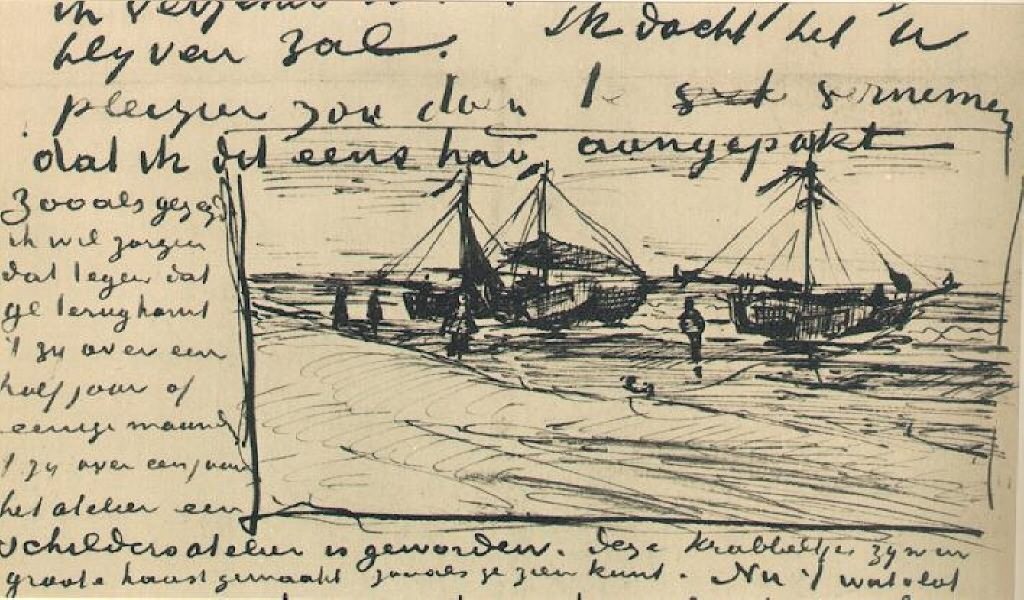 blijven zal. Ik dacht het U
plezier zou doen te vernemen
dat ik dit eens had aangepakt
Zooals gezegd
ik wil zorgen
dat tegen dat
ge terugkomt
't zij over een
half jaar of
eenige maand
't zij over een jaar
het atelier een
schildersatelier is geworden. Deze krabbeltjes zijn in
groote haast gemaakt zooals ge zien kunt. Nu 't wat vlot